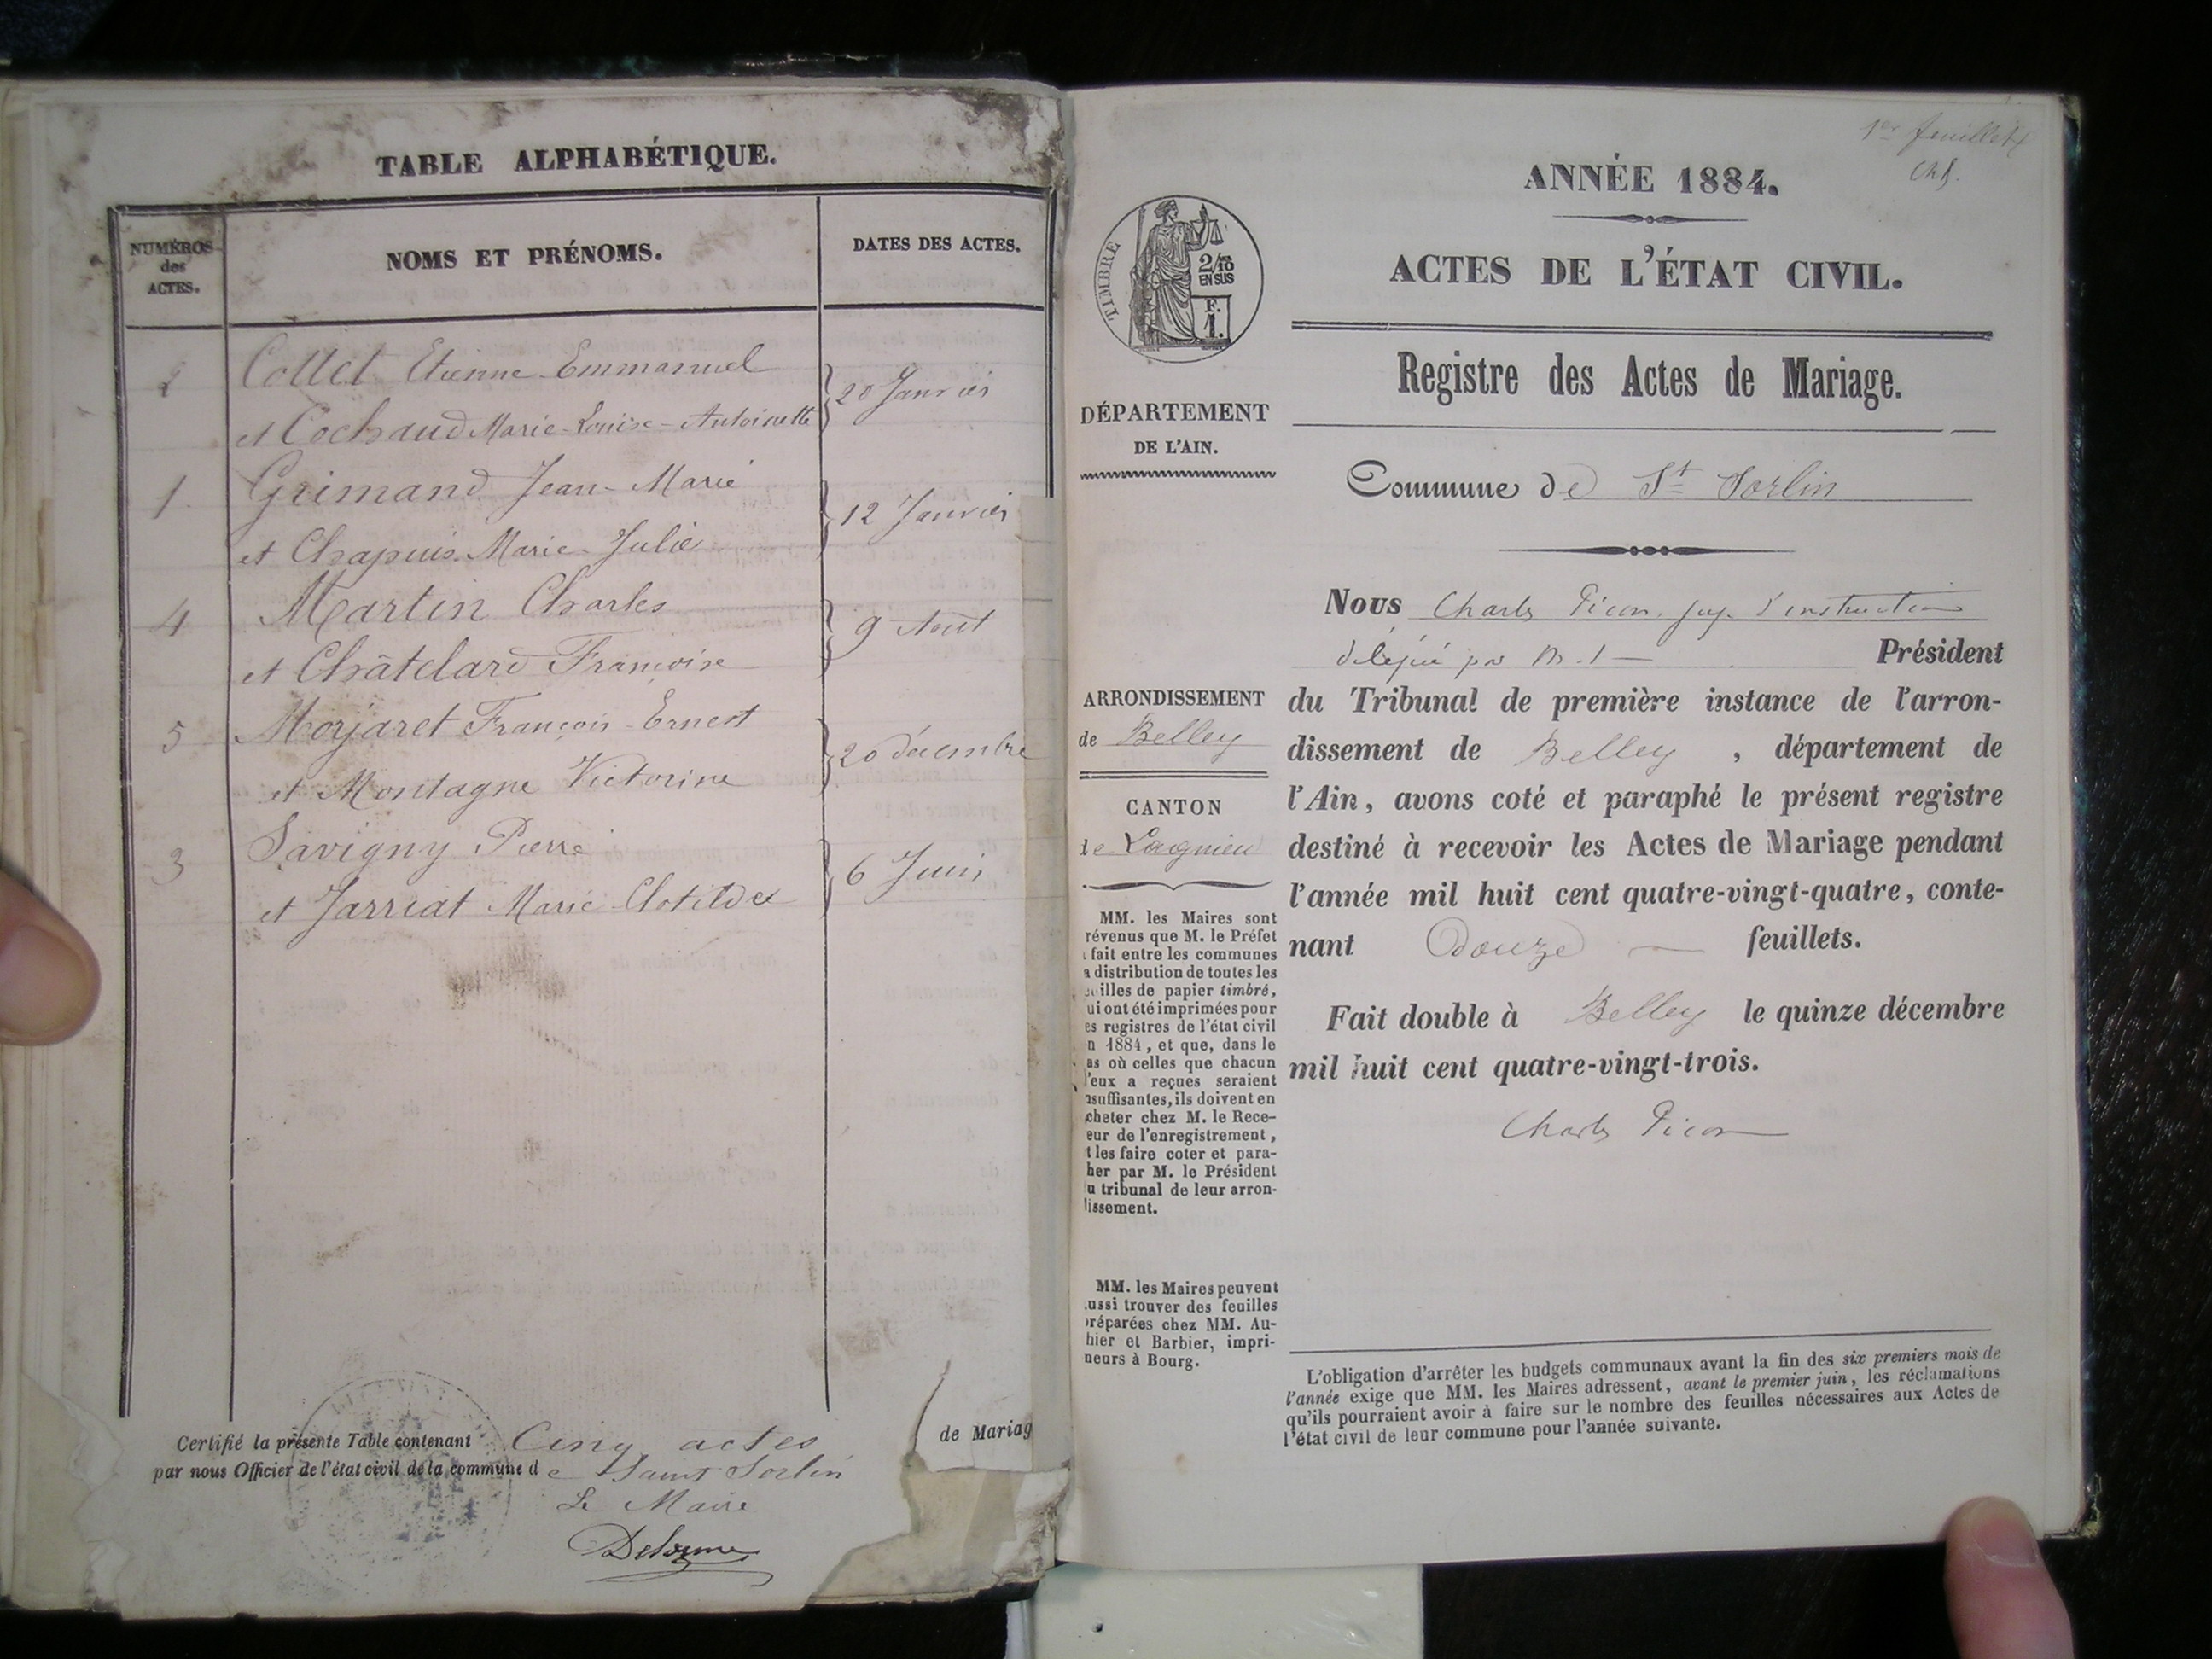 TABLE ALPHABÉTIQUE.
NUMÉROS des ACTES.
NOMS ET PRÉNOMS.
DATES DES ACTES.
2 Collet Etienne Emmanuel
et Cochaud Marie-Louise-Antoinette } 20 Janvier
1. Grimand Jean-Marie
et Chapuis Marie Julie } 12 Janvier
4 Martin Charles
et Châtelard Françoise } 9 Août
5 François-Ernest
et Montagne Victorine } 20 décembre
3 Savigny Pierre
et Jarriat Marie Clotilde } 6 Juin
Certifié la présente Table contenant Cinq actes de Mariag
par nous Officier de l'état civil de la commune de Saint Sorlin
Le Maire
Delorme
1er feuillet
ANNÉE 1884.
ACTES DE L'ÉTAT CIVIL.
Registre des Actes de Mariage.
TIMBRE
2/10 EN SUS
F.
1.
DÉPARTEMENT
DE L'AIN.
ARRONDISSEMENT
de Belley
CANTON
de Lagnieu
MM. les Maires sont
révenus que M. le Préfet
fait entre les communes
a distribution de toutes les
illes de papier timbré,
ui ont été imprimées pour
es registres de l'état civil
n 1884, et que, dans le
as où celles que chacun
'eux a reçues seraient
nsuffisantes, ils doivent en
cheter chez M. le Rece-
eur de l'enregistrement,
t les faire coter et para-
her par M. le Président
u tribunal de leur arron-
issement.
MM. les Maires peuvent
ussi trouver des feuilles
réparées chez MM. Au-
hier et Barbier, impri-
neurs à Bourg.
Commune de St Sorlin
Nous Charles Picon, juge d'instruction
délégué par M. l Président
du Tribunal de première instance de l'arron-
dissement de Belley, département de
l'Ain, avons coté et paraphé le présent registre
destiné à recevoir les Actes de Mariage pendant
l'année mil huit cent quatre-vingt-quatre, conte-
nant Douze feuillets.
Fait double à Belley le quinze décembre
mil huit cent quatre-vingt-trois.
Charles Picon
L'obligation d'arrêter les budgets communaux avant la fin des six premiers mois de
l'année exige que MM. les Maires adressent, avant le premier juin, les réclamations
qu'ils pourraient avoir à faire sur le nombre des feuilles nécessaires aux Actes de
l'état civil de leur commune pour l'année suivante.